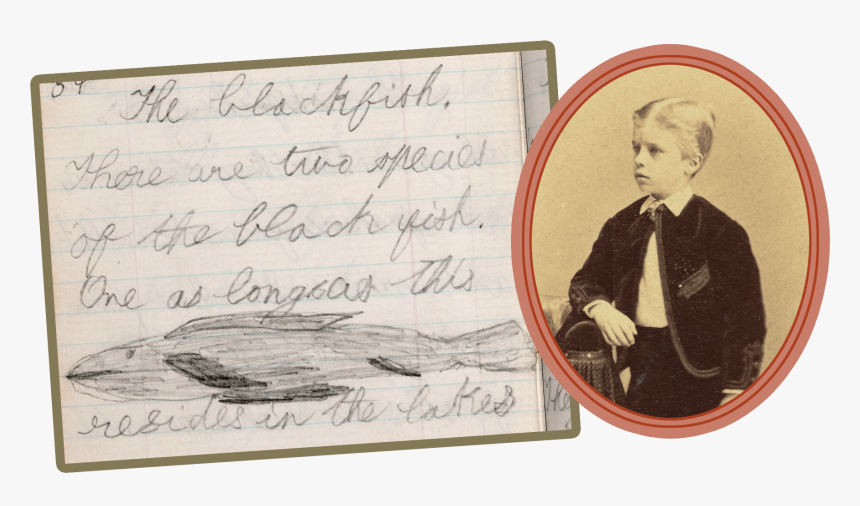 59
The blackfish.
There are two species
of the black fish.
One as long as this
resides in the lakes